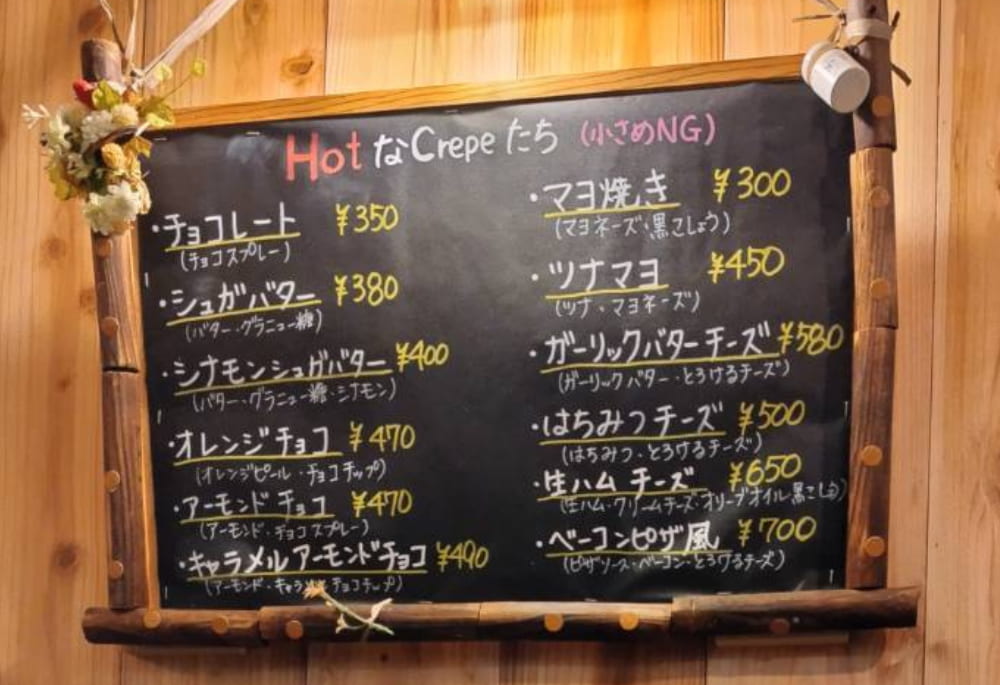 HotなCrepeたち (小さめNG)
・チョコレート ¥350
(チョコスプレー)
・シュガバター ¥380
(バター・グラニュー糖)
・シナモンシュガバター ¥400
(バター・グラニュー糖・シナモン)
・オレンジチョコ ¥470
(オレンジピール・チョコチップ)
・アーモンドチョコ ¥470
(アーモンド・チョコスプレー)
・キャラメルアーモンドチョコ ¥490
(アーモンド・キャラメル チョコチップ)
・マヨ焼き ¥300
(マヨネーズ・黒こしょう)
・ツナマヨ ¥450
(ツナ・マヨネーズ)
・ガーリックバターチーズ ¥580
(ガーリックバター・とろけるチーズ)
・はちみつチーズ ¥500
(はちみつ・とろけるチーズ)
・生ハムチーズ ¥650
(生ハム・クリームチーズ・オリーブオイル 黒こしょう)
・ベーコンピザ風 ¥700
(ピザソース・ベーコン・とろけるチーズ)